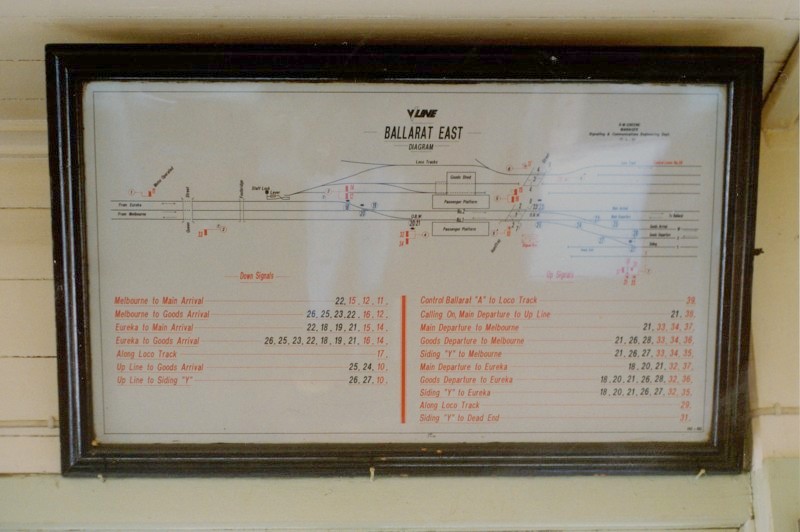 V/LINE
BALLARAT EAST
DIAGRAM
Loco Tracks
Goods Shed
Passenger Platform
Passenger Platform
From Eureka
From Melbourne
Staff Lock
Lever
No.2
No.1
Down Signals
Melbourne to Main Arrival 22, 15, 12, 11.
Melbourne to Goods Arrival 26, 25, 23, 22, 16, 12.
Eureka to Main Arrival 22, 18, 19, 21, 15, 14.
Eureka to Goods Arrival 26, 25, 23, 22, 18, 19, 21, 16, 14.
Along Loco Track 17.
Up Line to Goods Arrival 25, 24, 10.
Up Line to Siding "Y" 26, 27, 10.
Up Signals
Control Ballarat "A" to Loco Track 39.
Calling On, Main Departure to Up Line 21, 38.
Main Departure to Melbourne 21, 33, 34, 37.
Goods Departure to Melbourne 21, 26, 28, 33, 34, 36.
Siding "Y" to Melbourne 21, 26, 27, 33, 34, 35.
Main Departure to Eureka 18, 20, 21, 32, 37.
Goods Departure to Eureka 18, 20, 21, 26, 28, 32, 36.
Siding "Y" to Eureka 18, 20, 21, 26, 27, 32, 35.
Along Loco Track 29.
Siding "Y" to Dead End 31.